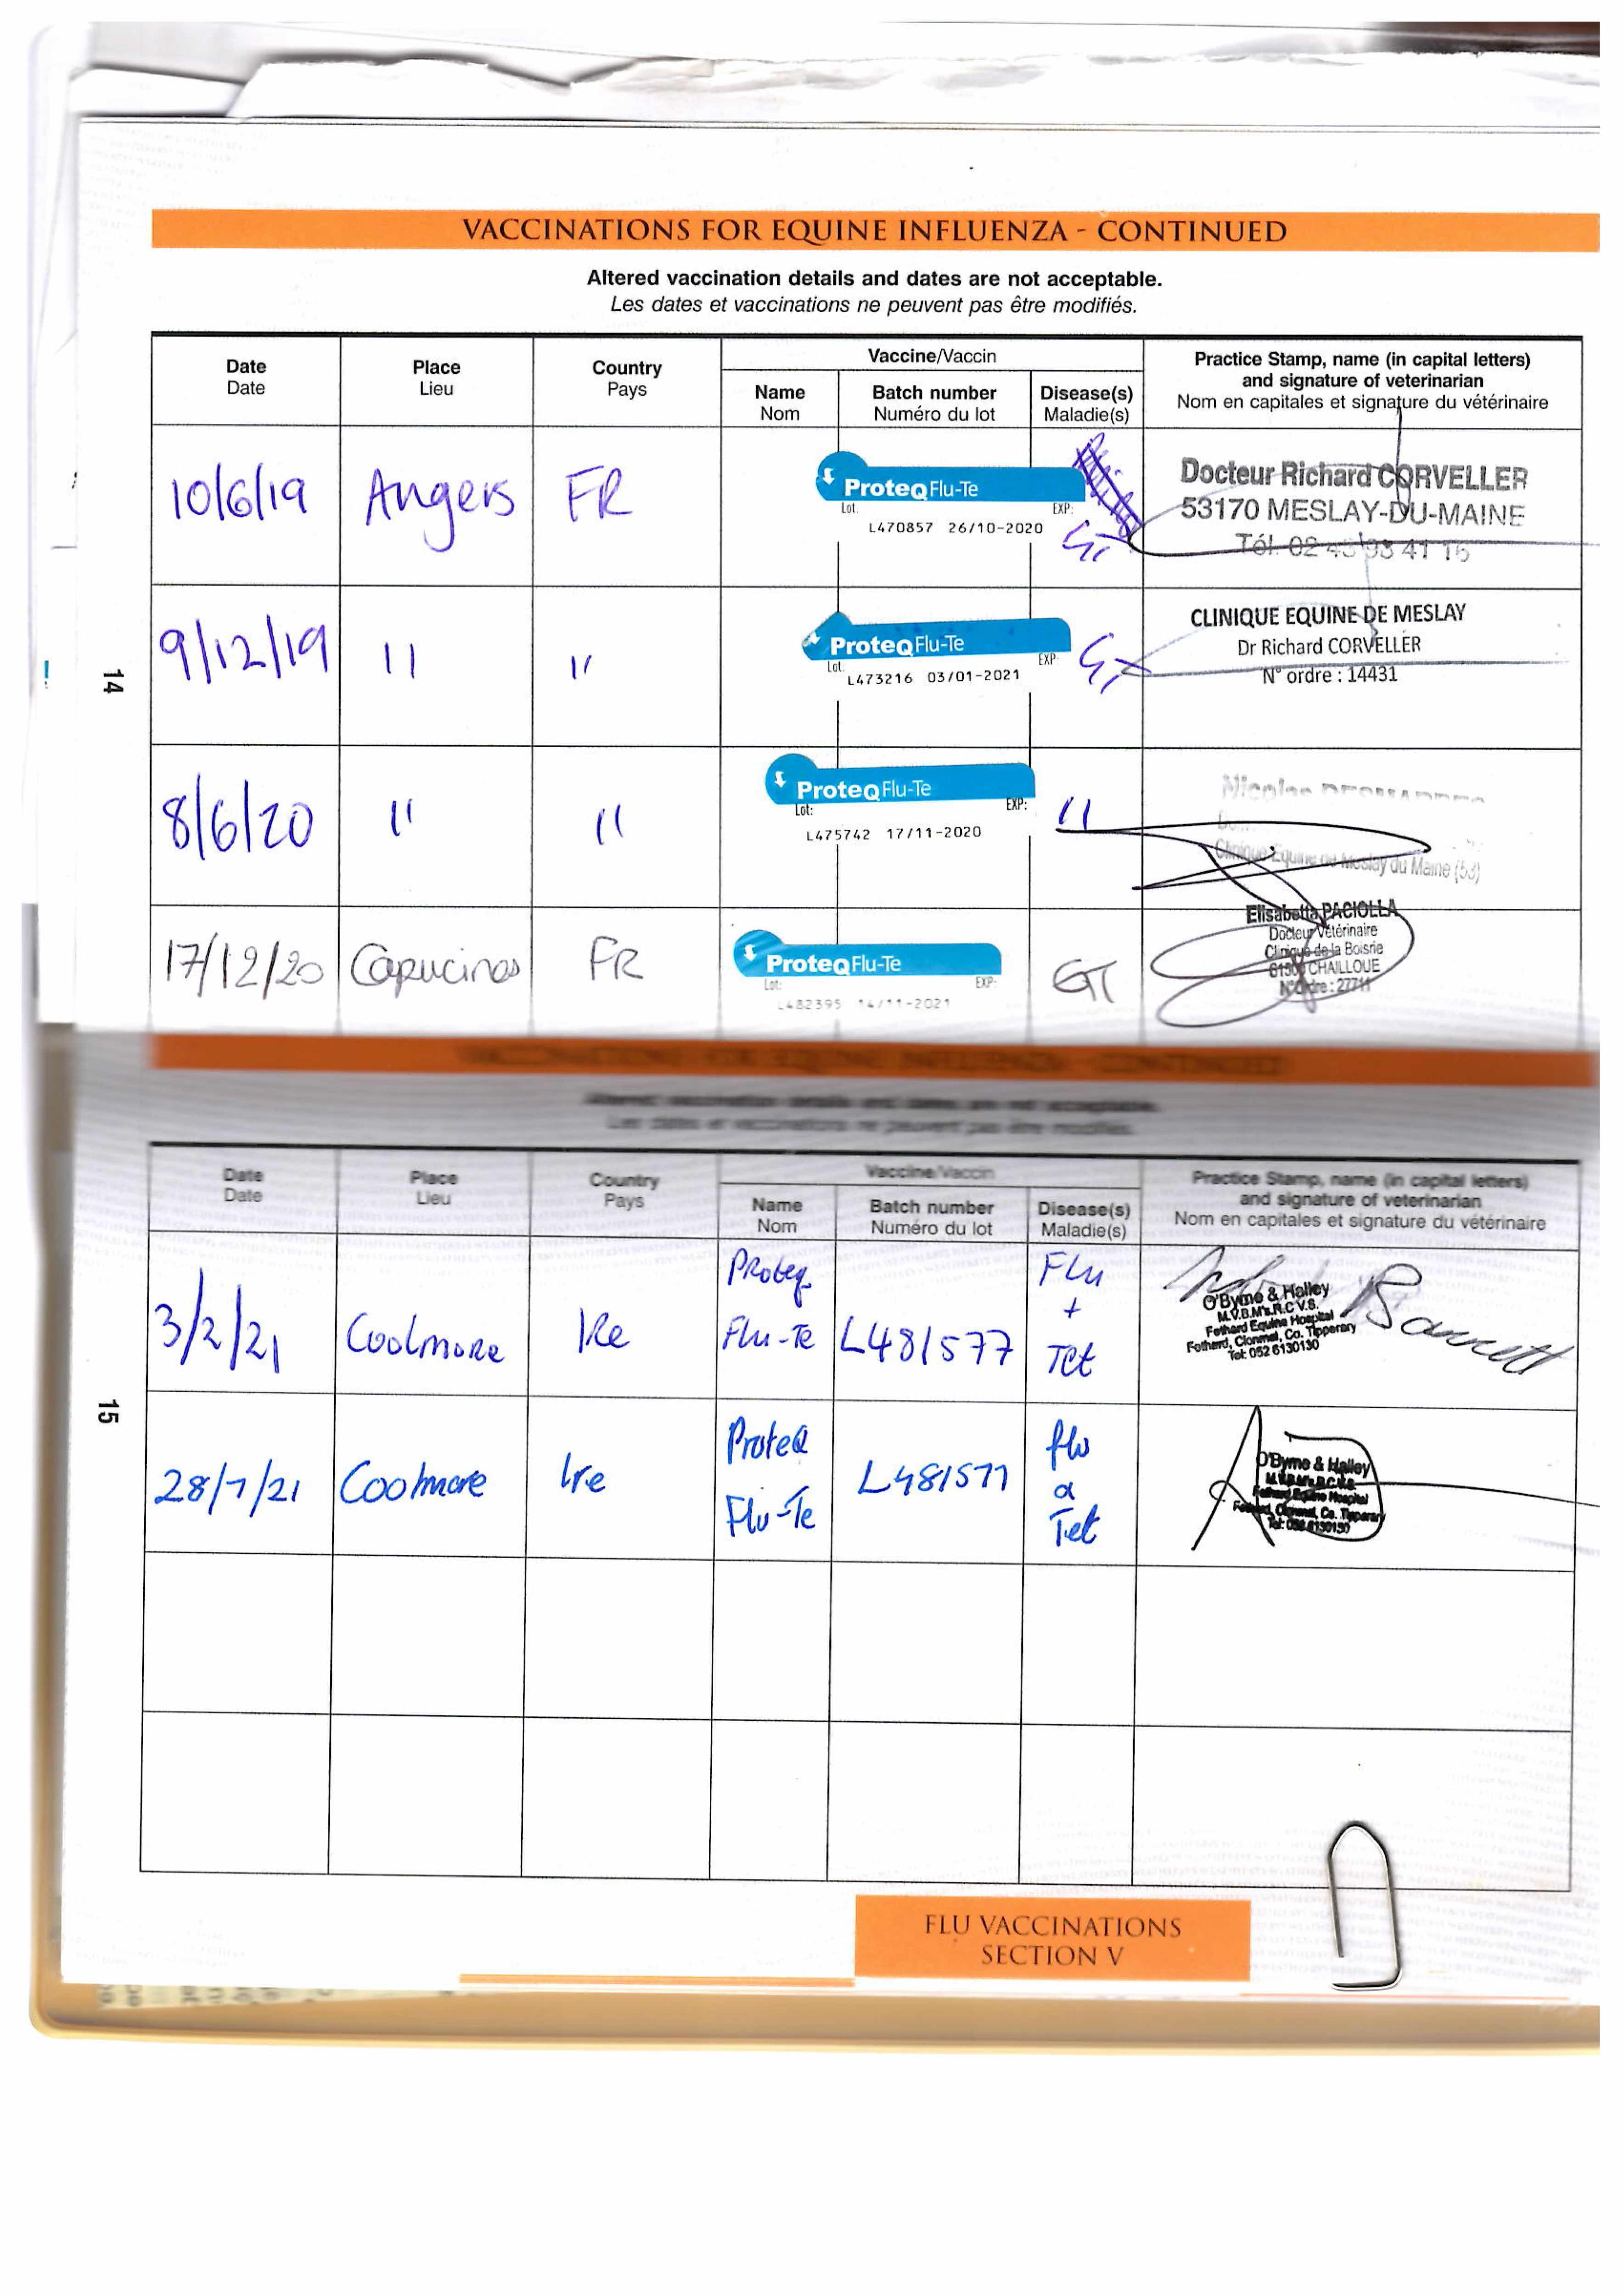 VACCINATIONS FOR EQUINE INFLUENZA - CONTINUED
Altered vaccination details and dates are not acceptable.
Les dates et vaccinations ne peuvent pas être modifiés.
Date Place Country Vaccine/Vaccin Practice Stamp, name (in capital letters)
Date Lieu Pays Name Batch number Disease(s) and signature of veterinarian
Nom Numéro du lot Maladie(s) Nom en capitales et signature du vétérinaire
10/6/19 Angers FR ProteqFlu-Te Docteur Richard CORVELLER
Lot. EXP: 53170 MESLAY-DU-MAINE
L470857 26/10-2020 GT Tél. 02 43 98 41 16
9/12/19 " " ProteqFlu-Te GT CLINIQUE EQUINE DE MESLAY
Lot. EXP: Dr Richard CORVELLER
L473216 03/01-2021 N° ordre : 14431
14
8/6/20 " " ProteqFlu-Te "
Lot: EXP: Clinique Equine de Meslay du Maine (53)
L475742 17/11-2020
17/12/20 Capucines FR ProteqFlu-Te GT Elisabetta PACIOLLA
Lot: EXP: Docteur Vétérinaire
L482395 14/11-2021 Clinique de la Boisrie
CHAILLOUE
N°Ordre : 27711
VACCINATIONS FOR EQUINE INFLUENZA - CONTINUED
Altered vaccination details and dates are not acceptable.
Les dates et vaccinations ne peuvent pas être modifiés.
Date Place Country Vaccine/Vaccin Practice Stamp, name (in capital letters)
Date Lieu Pays Name Batch number Disease(s) and signature of veterinarian
Nom Numéro du lot Maladie(s) Nom en capitales et signature du vétérinaire
3/2/21 Coolmore IRe Proteq Flu-Te L481577 Flu + Tet
O'Byrne & Halley
M.V.B.M's.R.C.V.S.
Fethard Equine Hospital
Fethard, Clonmel, Co. Tipperary
Tel: 052 6130130
15
28/7/21 Coolmore Ire ProteQ Flu-Te L481577 flu & Tet
O'Byrne & Halley
M.V.B.M's.R.C.V.S.
Fethard Equine Hospital
Fethard, Clonmel, Co. Tipperary
Tel: 052 6130130
FLU VACCINATIONS
SECTION V